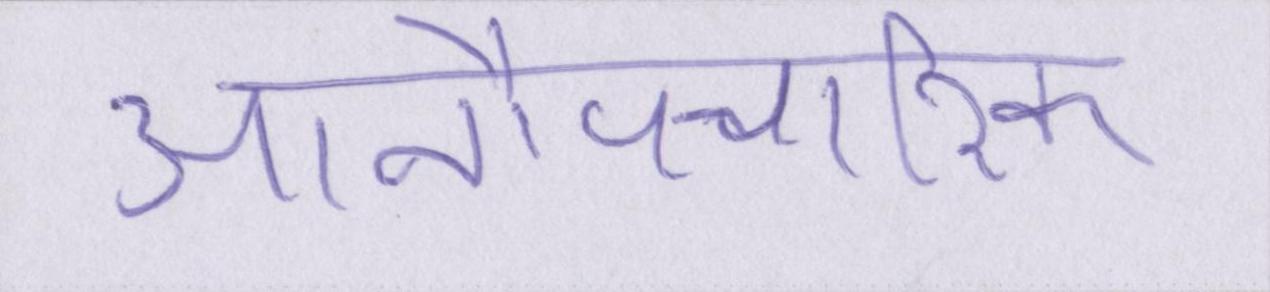 आनौपचारिक